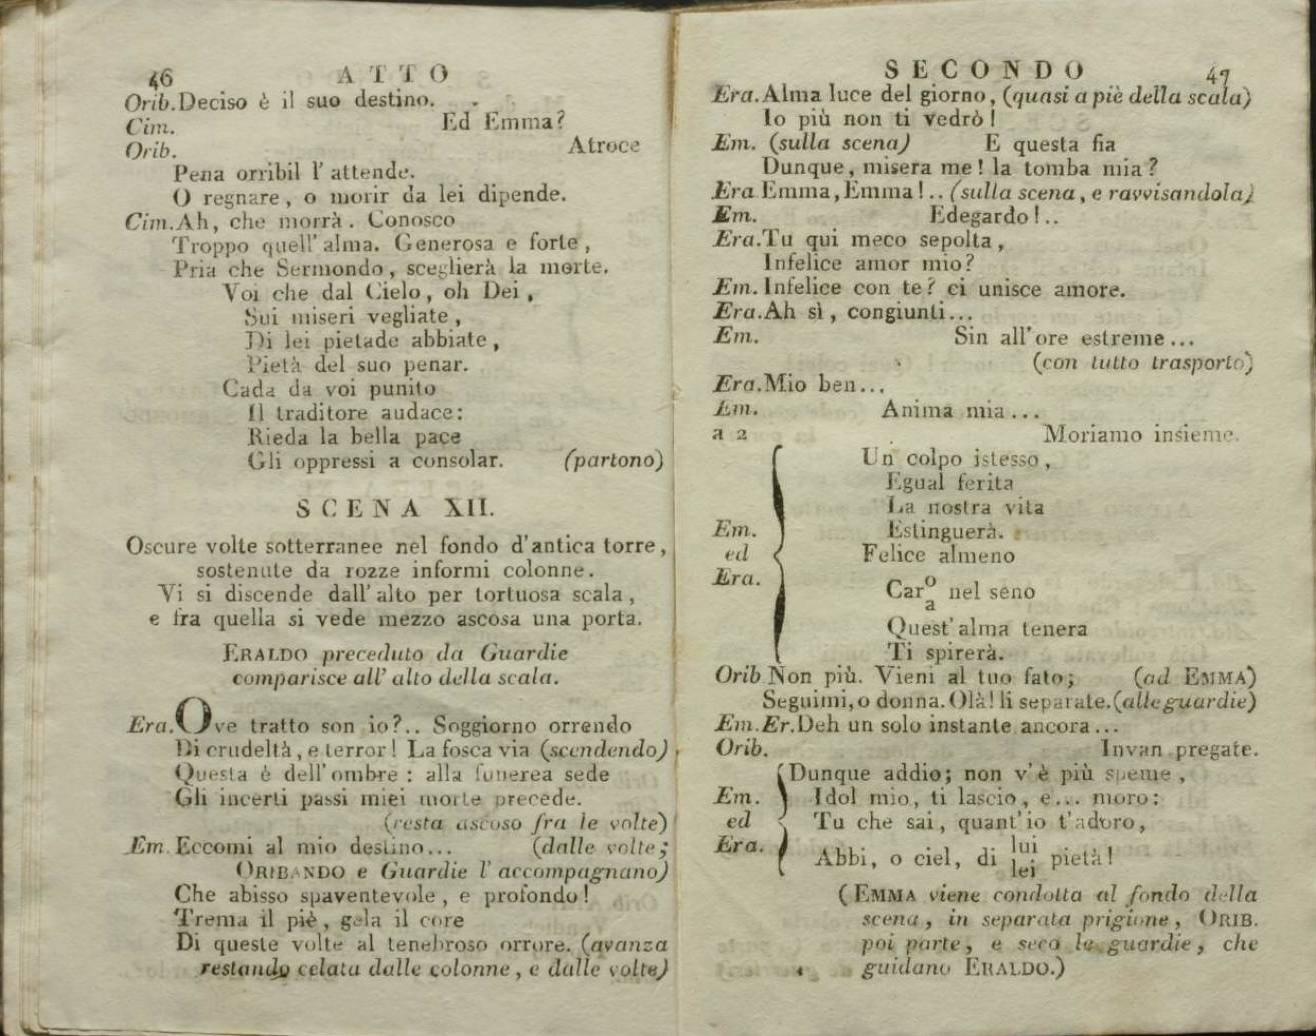 46 ATTO
Orib. Deciso è il suo destino.
Cim. Ed Emma?
Orib. Atroce
Pena orribil l' attende.
O regnare, o morir da lei dipende.
Cim. Ah, che morrà. Conosco
Troppo quell' alma. Generosa e forte,
Pria che Sermondo, sceglierà la morte.
Voi che dal Cielo, oh Dei,
Sui miseri vegliate,
Di lei pietade abbiate,
Pietà del suo penar.
Cada da voi punito
Il traditore audace:
Rieda la bella pace
Gli oppressi a consolar. (partono)
SCENA XII.
Oscure volte sotterranee nel fondo d'antica torre,
sostenute da rozze informi colonne.
Vi si discende dall' alto per tortuosa scala,
e fra quella si vede mezzo ascosa una porta.
ERALDO preceduto da Guardie
comparisce all' alto della scala.
Era. Ove tratto son io?.. Soggiorno orrendo
Di crudeltà, e terror! La fosca via (scendendo)
Questa è dell' ombre: alla funerea sede
Gli incerti passi miei morte precede.
(resta ascoso fra le volte)
Em. Eccomi al mio destino... (dalle volte;
ORIBANDO e Guardie l' accompagnano)
Che abisso spaventevole, e profondo!
Trema il piè, gela il core
Di queste volte al tenebroso orrore. (avanza
restando celata dalle colonne, e dalle volte)
SECONDO 47
Era. Alma luce del giorno, (quasi a piè della scala)
Io più non ti vedrò!
Em. (sulla scena) E questa fia
Dunque, misera me! la tomba mia?
Era Emma, Emma!.. (sulla scena, e ravvisandola)
Em. Edegardo!..
Era. Tu qui meco sepolta,
Infelice amor mio?
Em. Infelice con te? ci unisce amore.
Era. Ah sì, congiunti...
Em. Sin all' ore estreme...
(con tutto trasporto)
Era. Mio ben...
Em. Anima mia...
a 2 Moriamo insieme.
Un colpo istesso,
Egual ferita
La nostra vita
Em. Estinguerà.
ed Felice almeno
Era. Car o/a nel seno
Quest' alma tenera
Ti spirerà.
Orib Non più. Vieni al tuo fato; (ad EMMA)
Seguimi, o donna. Olà! li separate. (alle guardie)
Em. Er. Deh un solo instante ancora...
Orib. Invan pregate.
Dunque addio; non v'è più speme,
Em. Idol mio, ti lascio, e... moro:
ed Tu che sai, quant' io t'adoro,
Era. Abbi, o ciel, di lui/lei pietà!
(EMMA viene condotta al fondo della
scena, in separata prigione, ORIB.
poi parte, e seco le guardie, che
guidano ERALDO.)